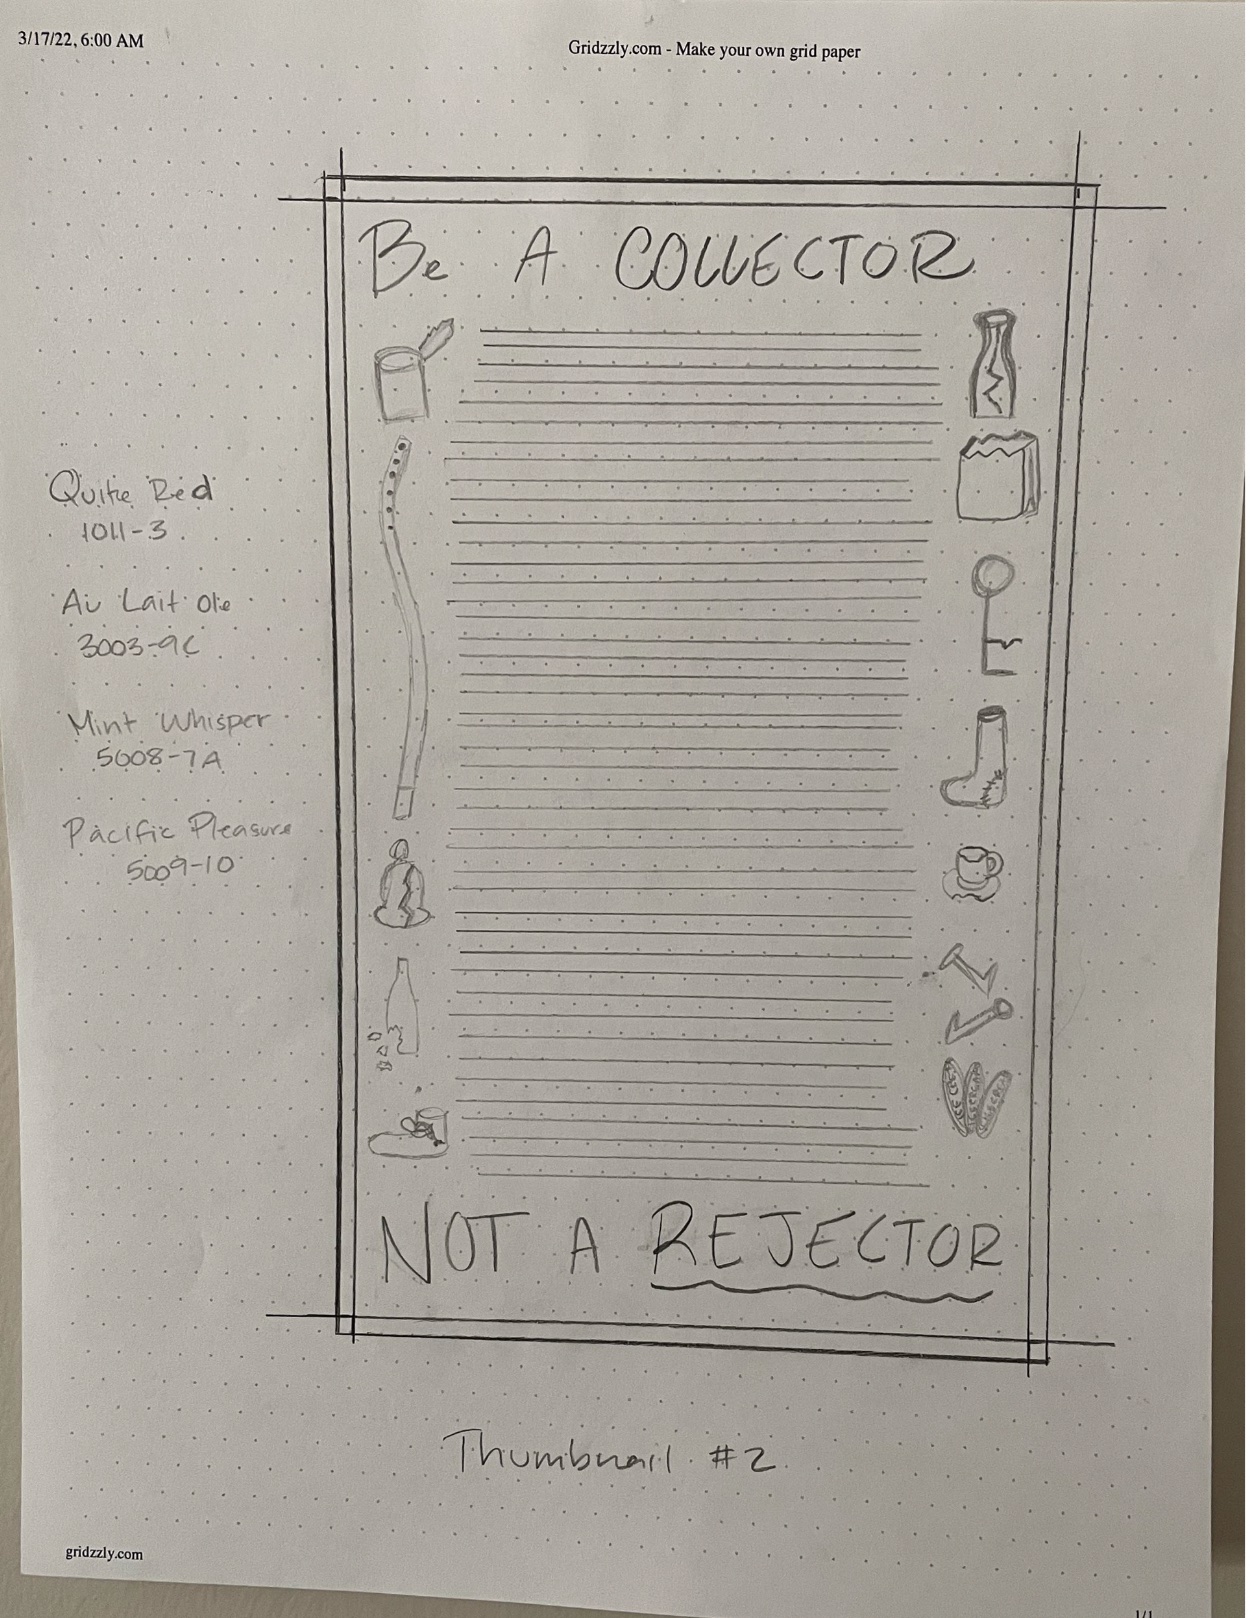 3/17/22, 6:00 AM
Gridzzly.com - Make your own grid paper
Be A COLLECTOR
Quite Red
1011-3
Au Lait Ole
3003-9C
Mint Whisper
5008-7A
Pacific Pleasure
5009-10
ICE CREAM
ICE CREAM
NOT A REJECTOR
Thumbnail #2
gridzzly.com
1/1